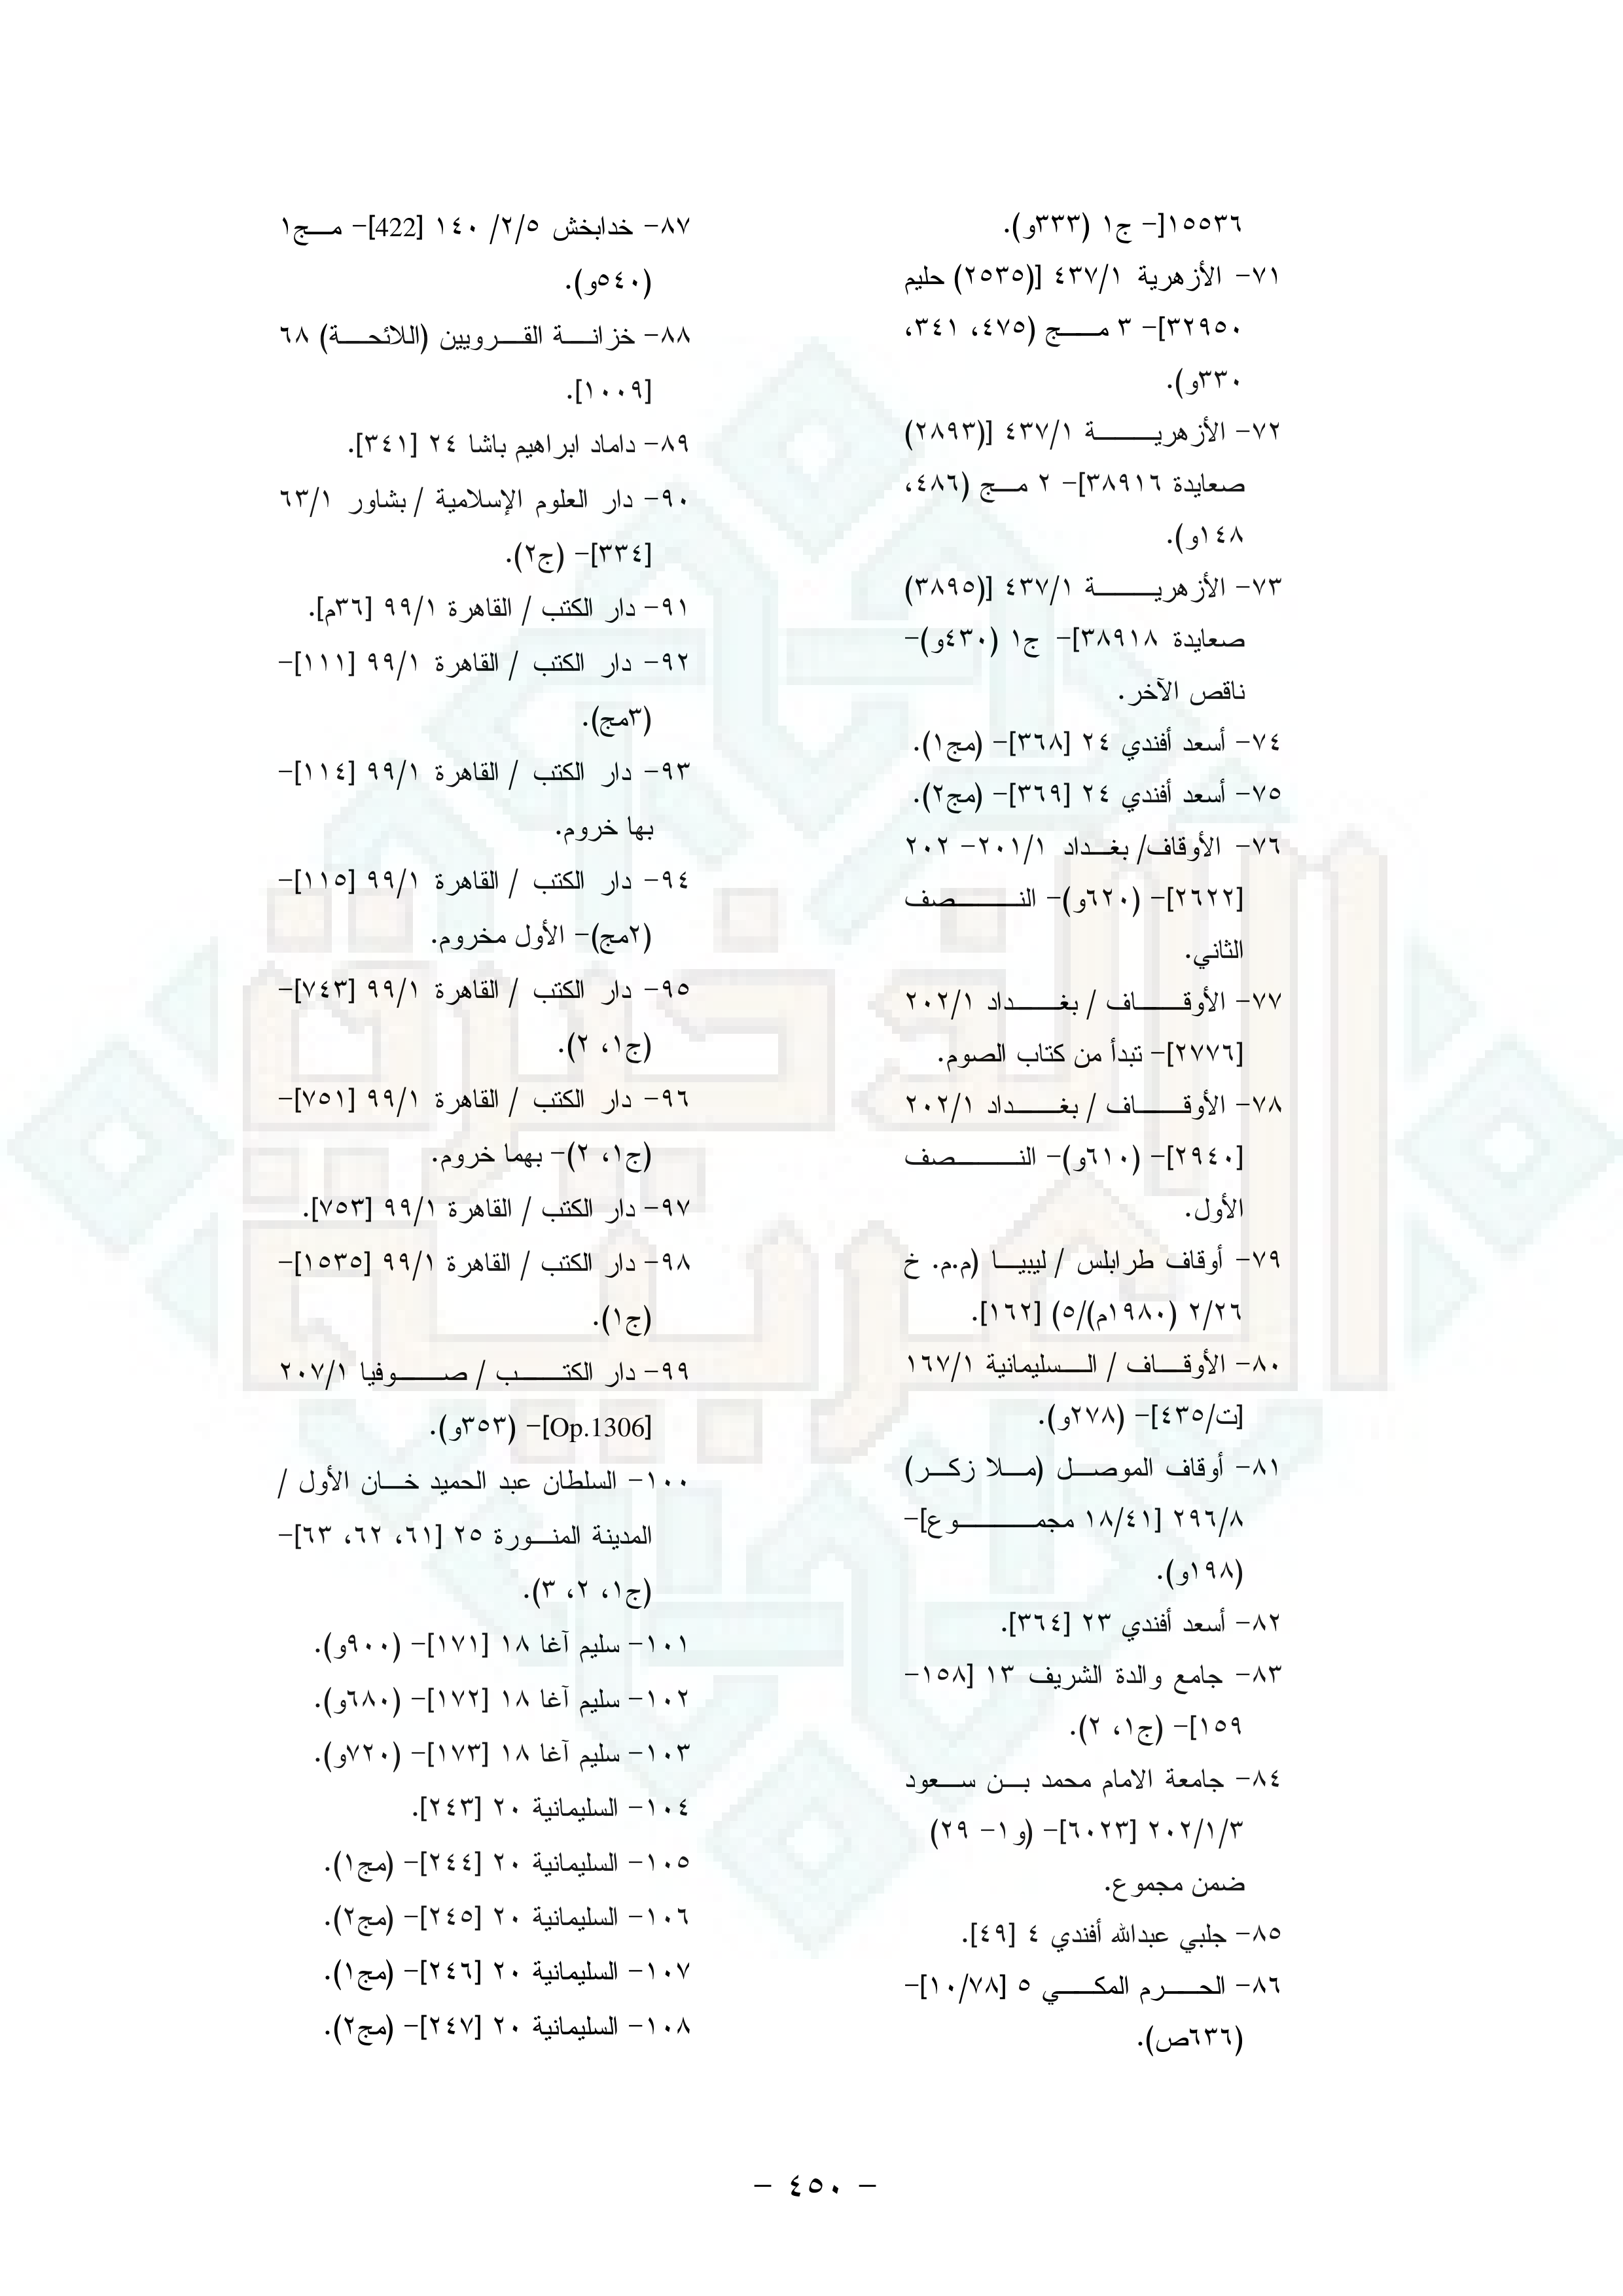 ١٥٥٣٦]- ج١ (٣٣٣و).
٧١- الأزهرية ٤٣٧/١ [(٢٥٣٥) حليم
٣٢٩٥٠]- ٣ مــج (٤٧٥، ٣٤١،
٣٣٠و).
٧٢- الأزهريــــة ٤٣٧/١ [(٢٨٩٣)
صعايدة ٣٨٩١٦]- ٢ مـج (٤٨٦،
١٤٨و).
٧٣- الأزهريــــة ٤٣٧/١ [(٣٨٩٥)
صعايدة ٣٨٩١٨]- ج١ (٤٣٠و)-
ناقص الآخر.
٧٤- أسعد أفندي ٢٤ [٣٦٨]- (مج١).
٧٥- أسعد أفندي ٢٤ [٣٦٩]- (مج٢).
٧٦- الأوقاف/ بغـداد ٢٠١/١- ٢٠٢
[٢٦٢٢]- (٦٢٠و)- النــــصف
الثاني.
٧٧- الأوقــــاف / بغــــداد ٢٠٢/١
[٢٧٧٦]- تبدأ من كتاب الصوم.
٧٨- الأوقــــاف / بغــــداد ٢٠٢/١
[٢٩٤٠]- (٦١٠و)- النــــصف
الأول.
٧٩- أوقاف طرابلس / ليبيـا (م.م. خ
٢/٢٦ (١٩٨٠م)/٥) [١٦٢].
٨٠- الأوقــاف / الــسليمانية ١٦٧/١
[ت/٤٣٥]- (٢٧٨و).
٨١- أوقاف الموصــل (مـلا زكـر)
٢٩٦/٨ [١٨/٤١ مجمــــوع]-
(١٩٨و).
٨٢- أسعد أفندي ٢٣ [٣٦٤].
٨٣- جامع والدة الشريف ١٣ [١٥٨-
١٥٩]- (ج١، ٢).
٨٤- جامعة الامام محمد بـن سـعود
٢٠٢/١/٣ [٦٠٢٣]- (و١- ٢٩)
ضمن مجموع.
٨٥- جلبي عبدالله أفندي ٤ [٤٩].
٨٦- الحــرم المكــي ٥ [١٠/٧٨]-
(٦٣٦ص).
٨٧- خدابخش ٢/٥/ ١٤٠ [422]- مـج١
(٥٤٠و).
٨٨- خزانــة القــرويين (اللائحــة) ٦٨
[١٠٠٩].
٨٩- داماد ابراهيم باشا ٢٤ [٣٤١].
٩٠- دار العلوم الإسلامية / بشاور ٦٣/١
[٣٣٤]- (ج٢).
٩١- دار الكتب / القاهرة ٩٩/١ [٣٦م].
٩٢- دار الكتب / القاهرة ٩٩/١ [١١١]-
(٣مج).
٩٣- دار الكتب / القاهرة ٩٩/١ [١١٤]-
بها خروم.
٩٤- دار الكتب / القاهرة ٩٩/١ [١١٥]-
(٢مج)- الأول مخروم.
٩٥- دار الكتب / القاهرة ٩٩/١ [٧٤٣]-
(ج١، ٢).
٩٦- دار الكتب / القاهرة ٩٩/١ [٧٥١]-
(ج١، ٢)- بهما خروم.
٩٧- دار الكتب / القاهرة ٩٩/١ [٧٥٣].
٩٨- دار الكتب / القاهرة ٩٩/١ [١٥٣٥]-
(ج١).
٩٩- دار الكتــــب / صــــوفيا ٢٠٧/١
[Op.1306]- (٣٥٣و).
١٠٠- السلطان عبد الحميد خـان الأول /
المدينة المنـورة ٢٥ [٦١، ٦٢، ٦٣]-
(ج١، ٢، ٣).
١٠١- سليم آغا ١٨ [١٧١]- (٩٠٠و).
١٠٢- سليم آغا ١٨ [١٧٢]- (٦٨٠و).
١٠٣- سليم آغا ١٨ [١٧٣]- (٧٢٠و).
١٠٤- السليمانية ٢٠ [٢٤٣].
١٠٥- السليمانية ٢٠ [٢٤٤]- (مج١).
١٠٦- السليمانية ٢٠ [٢٤٥]- (مج٢).
١٠٧- السليمانية ٢٠ [٢٤٦]- (مج١).
١٠٨- السليمانية ٢٠ [٢٤٧]- (مج٢).
- ٤٥٠ -